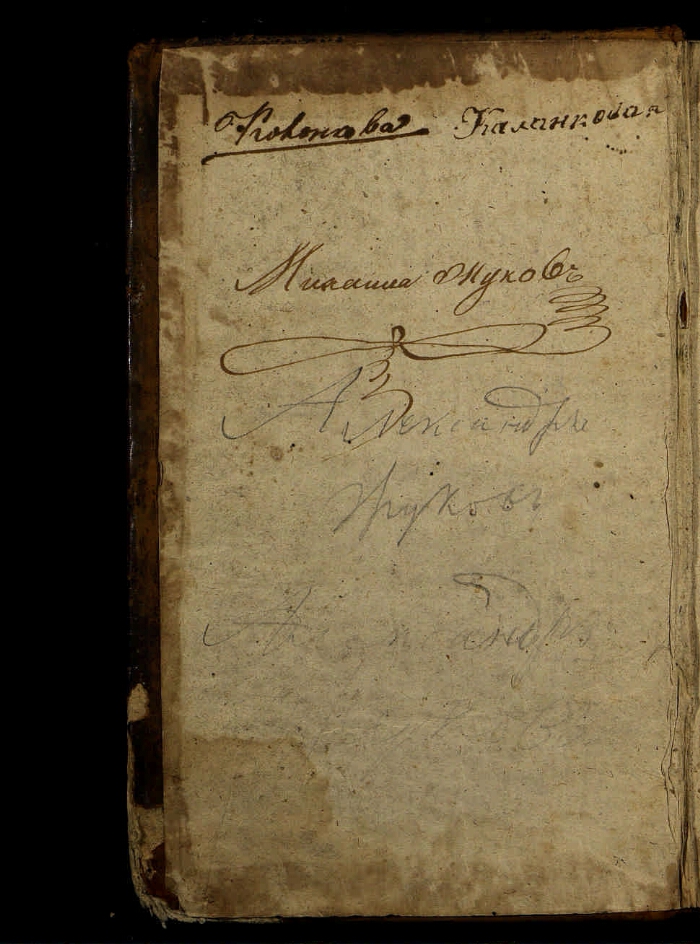 Каланковая
Михаила Жуковъ
Александръ
Жуковъ
Александръ